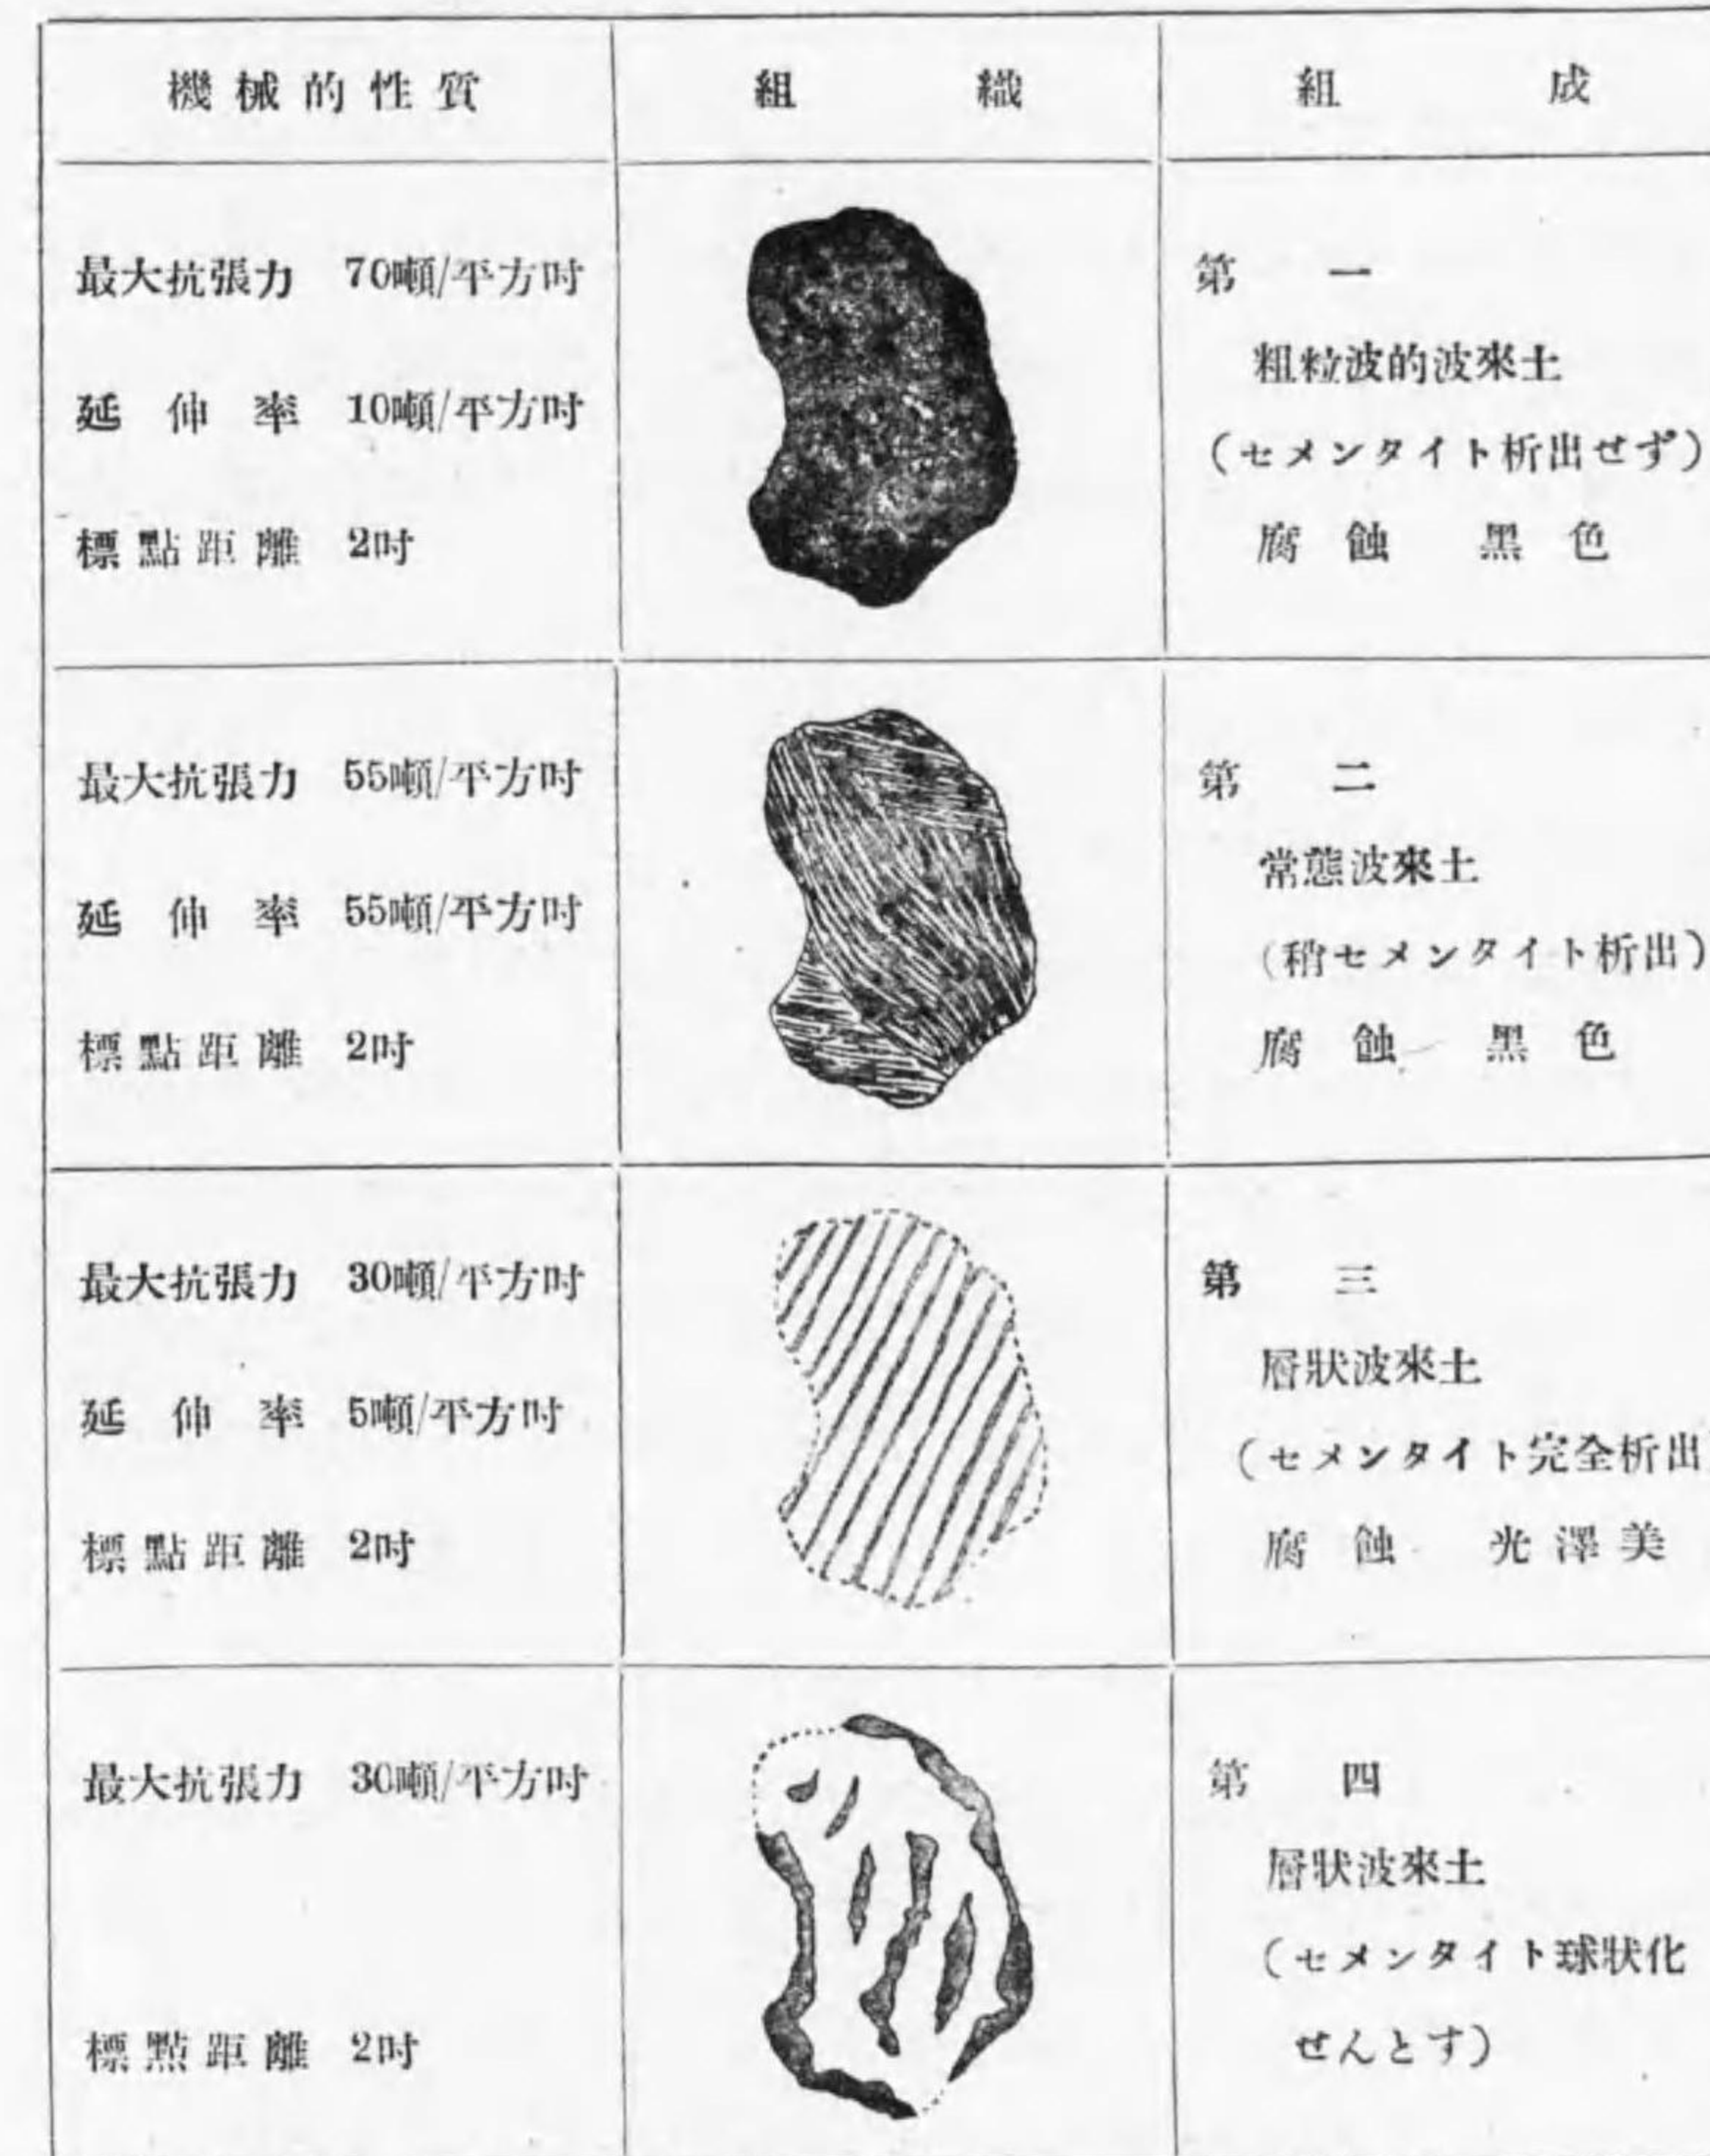 機械的性質 組織 組成
最大抗張力 70噸/平方吋
延伸率 10噸/平方吋
標點距離 2吋
第一
粗粒波的波來土
(セメンタイト析出せず)
腐蝕 黑色
最大抗張力 55噸/平方吋
延伸率 55噸/平方吋
標點距離 2吋
第二
常態波來土
(稍セメンタイト析出)
腐蝕 黑色
最大抗張力 30噸/平方吋
延伸率 5噸/平方吋
標點距離 2吋
第三
層狀波來土
(セメンタイト完全析出)
腐蝕 光澤美
最大抗張力 30噸/平方吋
標點距離 2吋
第四
層狀波來土
(セメンタイト球狀化
せんとす)